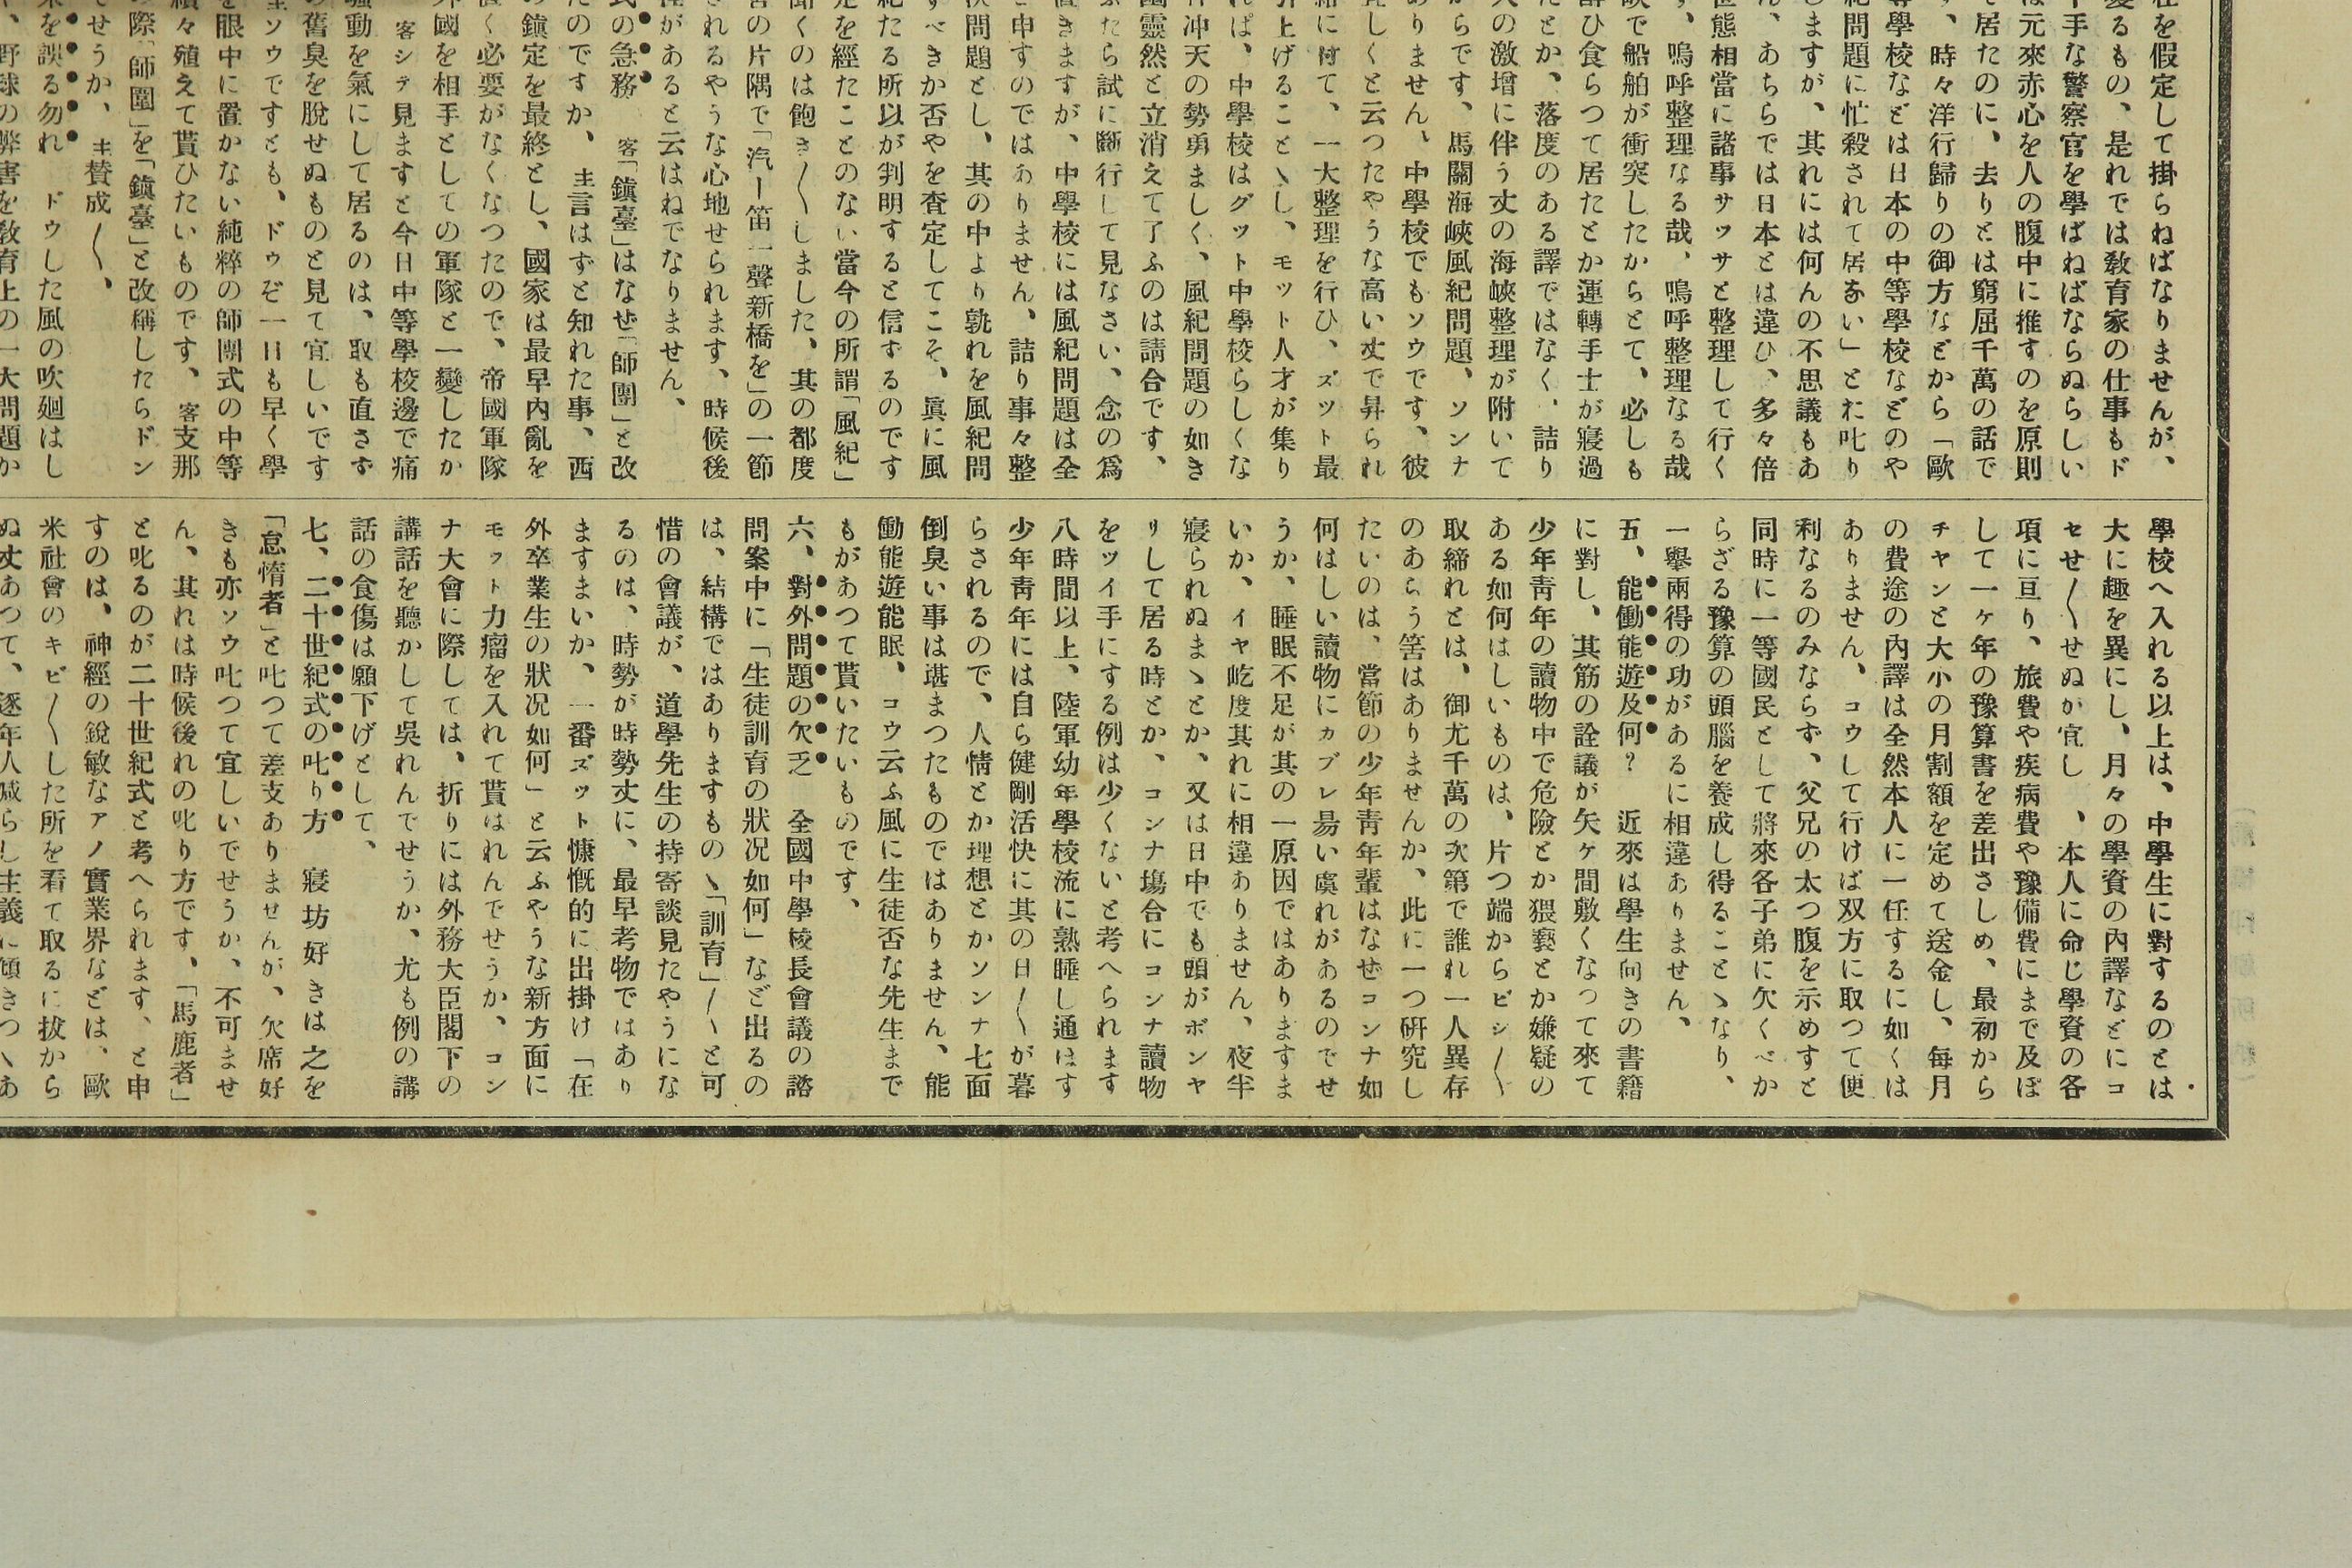 社を假定して掛らねばなりませんが、
變るもの、是れでは敎育家の仕事もド
下手な警察官を學ばねばならぬらしい
は元來赤心を人の腹中に推すのを原則
て居たのに、去りとは窮屈千萬の話で
す、時々洋行歸りの御方などから「歐
等學校などは日本の中等學校などのや
紀問題に忙殺されて居ない」とお叱り
しますが、其れには何んの不思議もあ
ん、あちらでは日本とは違ひ、多々倍
世態相當に諸事サツサと整理して行く
す、嗚呼整理なる哉、嗚呼整理なる哉
峽で船舶が衝突したからとて、必しも
醉ひ食らつて居たとか運轉手士が寢過
たとか、落度のある譯ではなく、詰り
入の激增に伴う丈の海峽整理が附いて
からです、馬關海峽風紀問題、ソンナ
ありません、中學校でもソウです、彼
宜しくと云つたやうな高い丈で昇られ
給に付て、一大整理を行ひ、ズツト最
引上げることゝし、モツト人才が集り
れば、中學校はグツト中學校らしくな
冲天の勢勇ましく、風紀問題の如き
幽靈然と立消えて了ふのは請合です、
ふたら試に斷行して見なさい、念の爲
置きますが、中學校には風紀問題は全
と申すのではありません、詰り事々整
決問題とし、其の中より孰れを風紀問
すべきか否やを査定してこそ、眞に風
紀たる所以が判明すると信ずるのです
定を經たことのない當今の所謂「風紀」
聞くのは飽き〳〵しました、其の都度
書の片隅で「汽ー笛一聲新橋を」の一節
されるやうな心地せられます、時候後
怪があると云はねでなりません、
式の急務　客「鎭臺」はなぜ「師團」と改
たのですか、主言はずと知れた事、西
の鎭定を最終とし、國家は最早內亂を
置く必要がなくなつたので、帝國軍隊
外國を相手としての軍隊と一變したか
客シテ見ますと今日中等學校邊で痛
騷動を氣にして居るのは、取も直さず
の舊臭を脫せぬものと見て宜しいです
主ソウですとも、ドゥぞ一日も早く學
を眼中に置かない純粹の師團式の中等
續々殖えて貰ひたいものです、客支那
の際「師團」を「鎭臺」と改稱したらドン
でせうか、主賛成〳〵、
策を誤る勿れ　ドウした風の吹廻はし
か、野球の弊害を敎育上の一大問題か
學校へ入れる以上は、中學生に對するのとは
大に趣を異にし、月々の學資の內譯などにコ
セせ〳〵せぬが宜し、本人に命じ學資の各
項に亘り、旅費や疾病費や豫備費にまで及ぼ
して一ヶ年の豫算書を差出さしめ、最初から
チヤンと大小の月割額を定めて送金し、每月
の費途の內譯は全然本人に一任するに如くは
ありません、コウして行けば双方に取つて便
利なるのみならず、父兄の太つ腹を示めすと
同時に一等國民として將來各子弟に欠くべか
らざる豫算の頭腦を養成し得ることゝなり、
一擧兩得の功があるに相違ありません、
五、能働能遊及何？　近來は學生向きの書籍
に對し、其筋の詮議が矢ヶ間敷くなつて來て
少年靑年の讀物中で危險とか猥褻とか嫌疑の
ある如何はしいものは、片つ端からビシ〳〵
取締れとは、御尤千萬の次第で誰れ一人異存
のあらう筈はありませんか、此に一つ硏究し
たいのは、當節の少年靑年輩はなぜコンナ如
何はしい讀物にカブレ易い虞れがあるのでせ
うか、睡眠不足が其の一原因ではありますま
いか、イヤ屹度其れに相違ありません、夜半
寢られぬまゝとか、又は日中でも頭がボンヤ
リして居る時とか、コンナ場合にコンナ讀物
をツイ手にする例は少くないと考へられます
八時間以上、陸軍幼年學校流に熟睡し通はす
少年靑年には自ら健剛活快に其の日〳〵が暮
らされるので、人情とか理想とかソンナ七面
倒臭い事は堪まつたものではありません、能
働能遊能眠、コウ云ふ風に生徒否な先生まで
もがあつて貰いたいものです、
六、對外問題の欠乏　全國中學校長會議の諮
問案中に「生徒訓育の狀況如何」など出るの
は、結構ではありますもの、「訓育」〳〵と可
惜の會議が、道學先生の持寄談見たやうにな
るのは、時勢が時勢丈に、最早考物ではあり
ますまいか、一番ズツト慷慨的に出掛け「在
外卒業生の狀況如何」と云ふやうな新方面に
モット力瘤を入れて貰はれんでせうか、コン
ナ大會に際しては、折りには外務大臣閣下の
講話を聽かして吳れんでせうか、尤も例の講
話の食傷は願下げとして、
七、二十世紀式の叱り方　寢坊好きは之を
「怠惰者」と叱つて差支ありませんが、欠席好
きも亦ソウ叱つて宜しいでせうか、不可ませ
ん、其れは時候後れの叱り方です、「馬鹿者」
と叱るのが二十世紀式と考へられます、と申
すのは、神經の銳敏なアノ實業界などは、歐
米社會のキビ〳〵した所を看て取るに拔から
ぬ丈あつて、逐年人減らし主義に傾きつゝあ